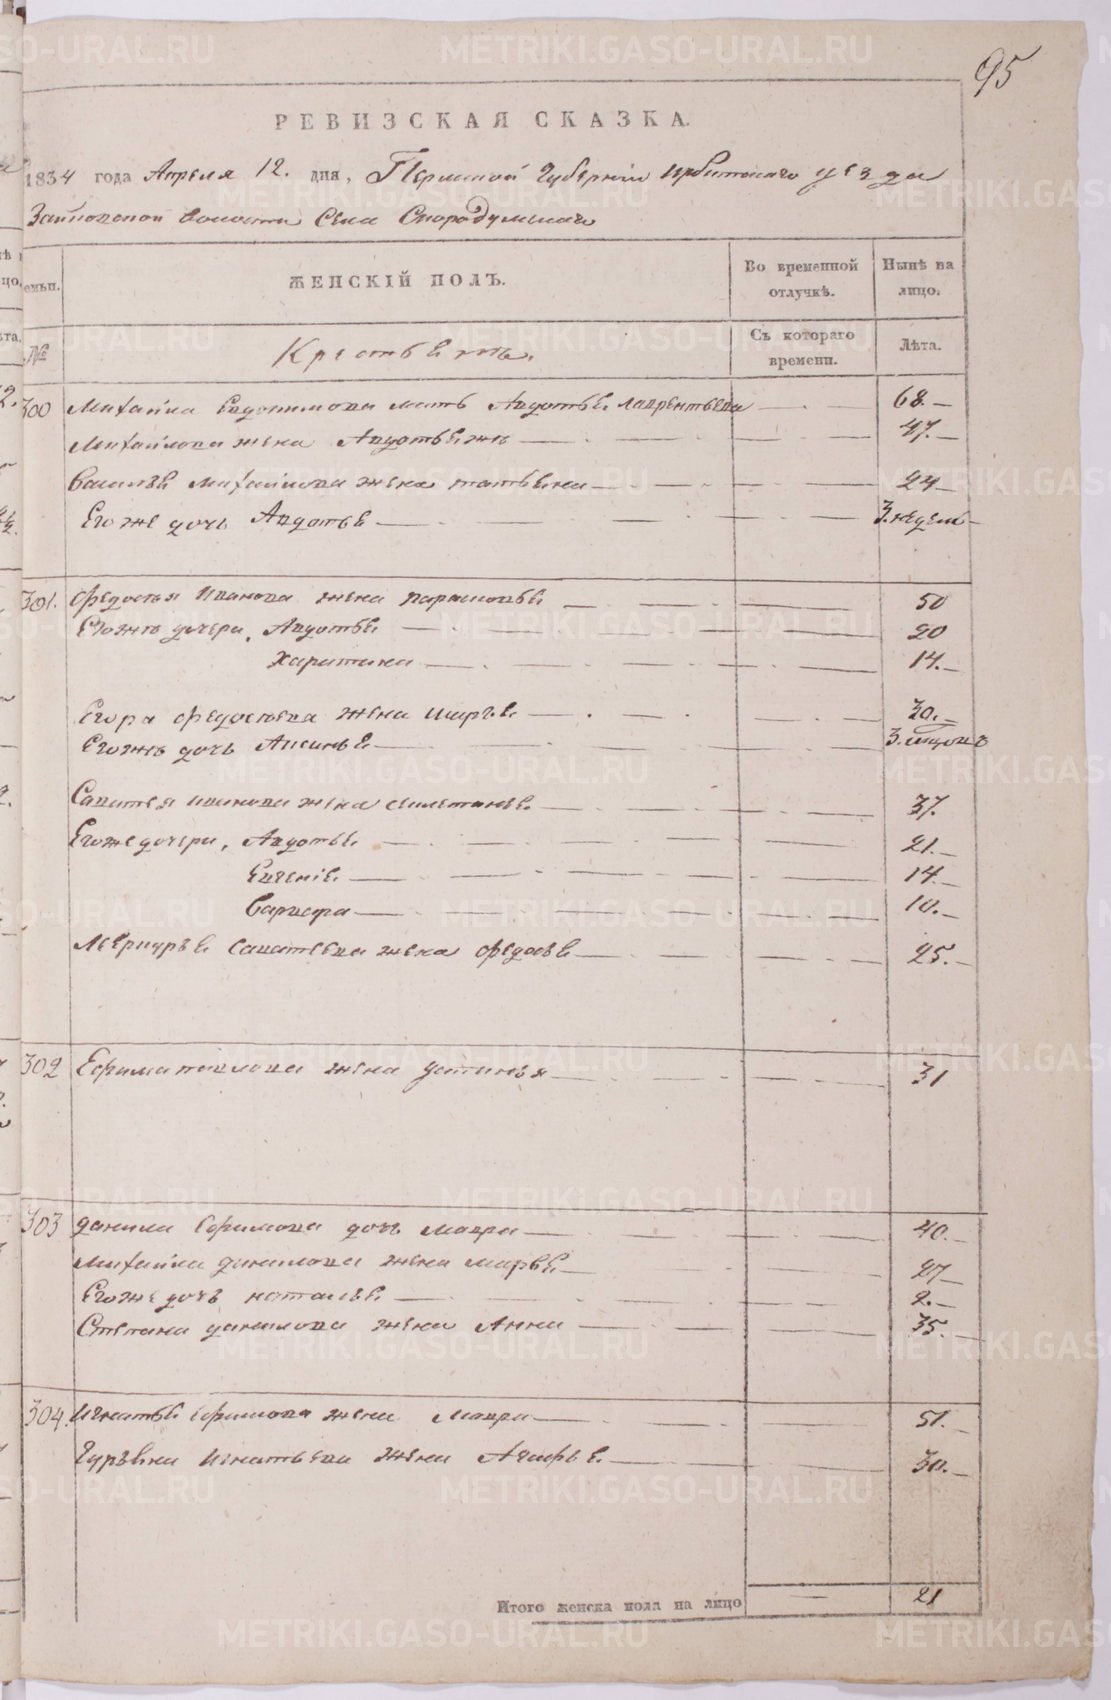 95
РЕВИЗСКАЯ СКАЗКА.
1834 года Апреля 12. дня, Пермской Губернiи Ирбитскаго уезда
Зайковской волости Села Скородумскаго
семьи. ЖЕНСКІЙ ПОЛЪ. Во временной отлучкѣ. Нынѣ на лицо.
№ Крестьянъ. Съ котораго времени. Лѣта.
300 Михайла Евдокимова мать Авдотья Лаврентьева 68.
Михайлова жена Авдотья жъ 47.
Василья Михайлова жена татьяна 24
Его же дочь Авдотья 3. недели
301. Федосея Иванова жена парасковья 50
Егожъ дочери, Авдотья 20
Харитина 14.
Егора Федосеева жена Марья 30.
Егожъ дочь Аксинья 3. месяцовъ
Саватея Иванова жена 37.
Егоже дочери, Авдотья 21.
Евгенiя 14.
Варвара 10.
Меркурья Саватеева жена Федосья 25.
302 Ефима павлова жена устинья 31
303 данила Ефимова дочь Мавра 40.
Михайла данилова жена Марья 27
Егоже дочь наталья 2.
Степана данилова жена Анна 35.
304. Игнатья Ефимова жена Мавра 51.
Игнатьева жена 30.
Итого женска пола на лицо 21
METRIKI.GASO-URAL.RU